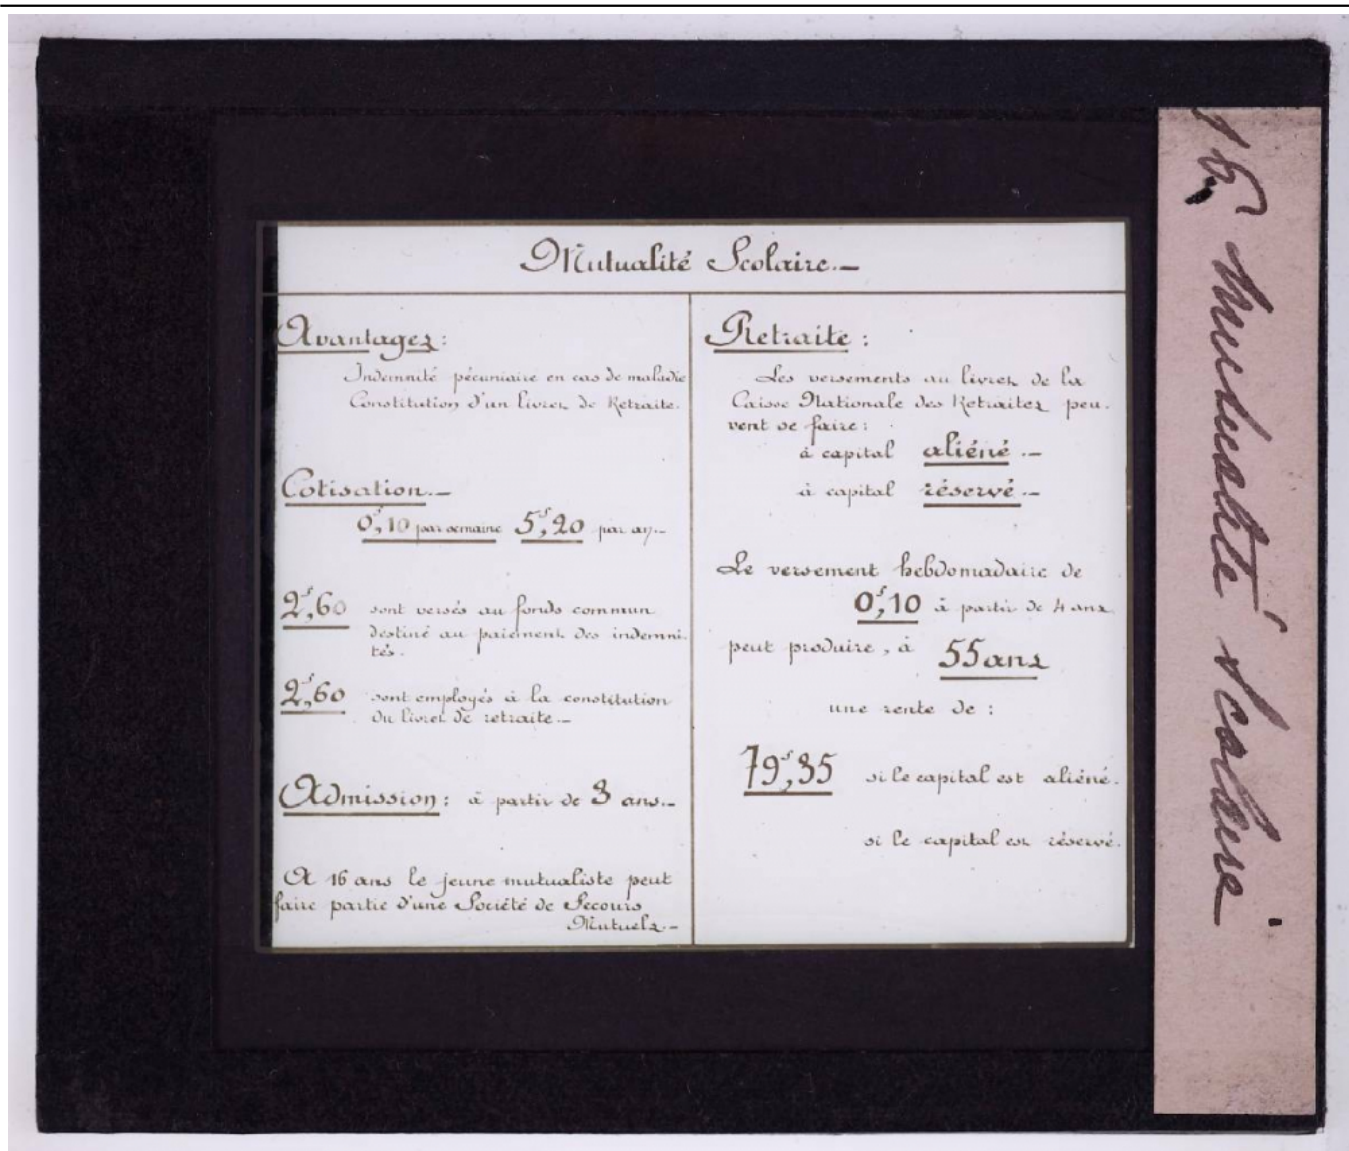 Mutualité Scolaire.—
Avantages :
Indemnité pécuniaire en cas de maladie
Constitution d'un livret de Retraite.
Cotisation.—
0f,10 par semaine 5f,20 par an.—
2f,60 sont versés au fonds commun
destiné au paiement des indemni-
tés.
2f,60 sont employés à la constitution
du livret de retraite.—
Admission : à partir de 3 ans.—
A 16 ans le jeune mutualiste peut
faire partie d'une Société de Secours
Mutuels.—
Retraite :
Les versements au livret de la
Caisse Nationale des Retraites peu-
vent se faire :
à capital aliéné.—
à capital réservé.—
Le versement hebdomadaire de
0f,10 à partir de 4 ans
peut produire, à 55 ans
une rente de :
79f,35 si le capital est aliéné.
si le capital est réservé.
Mutualité scolaire